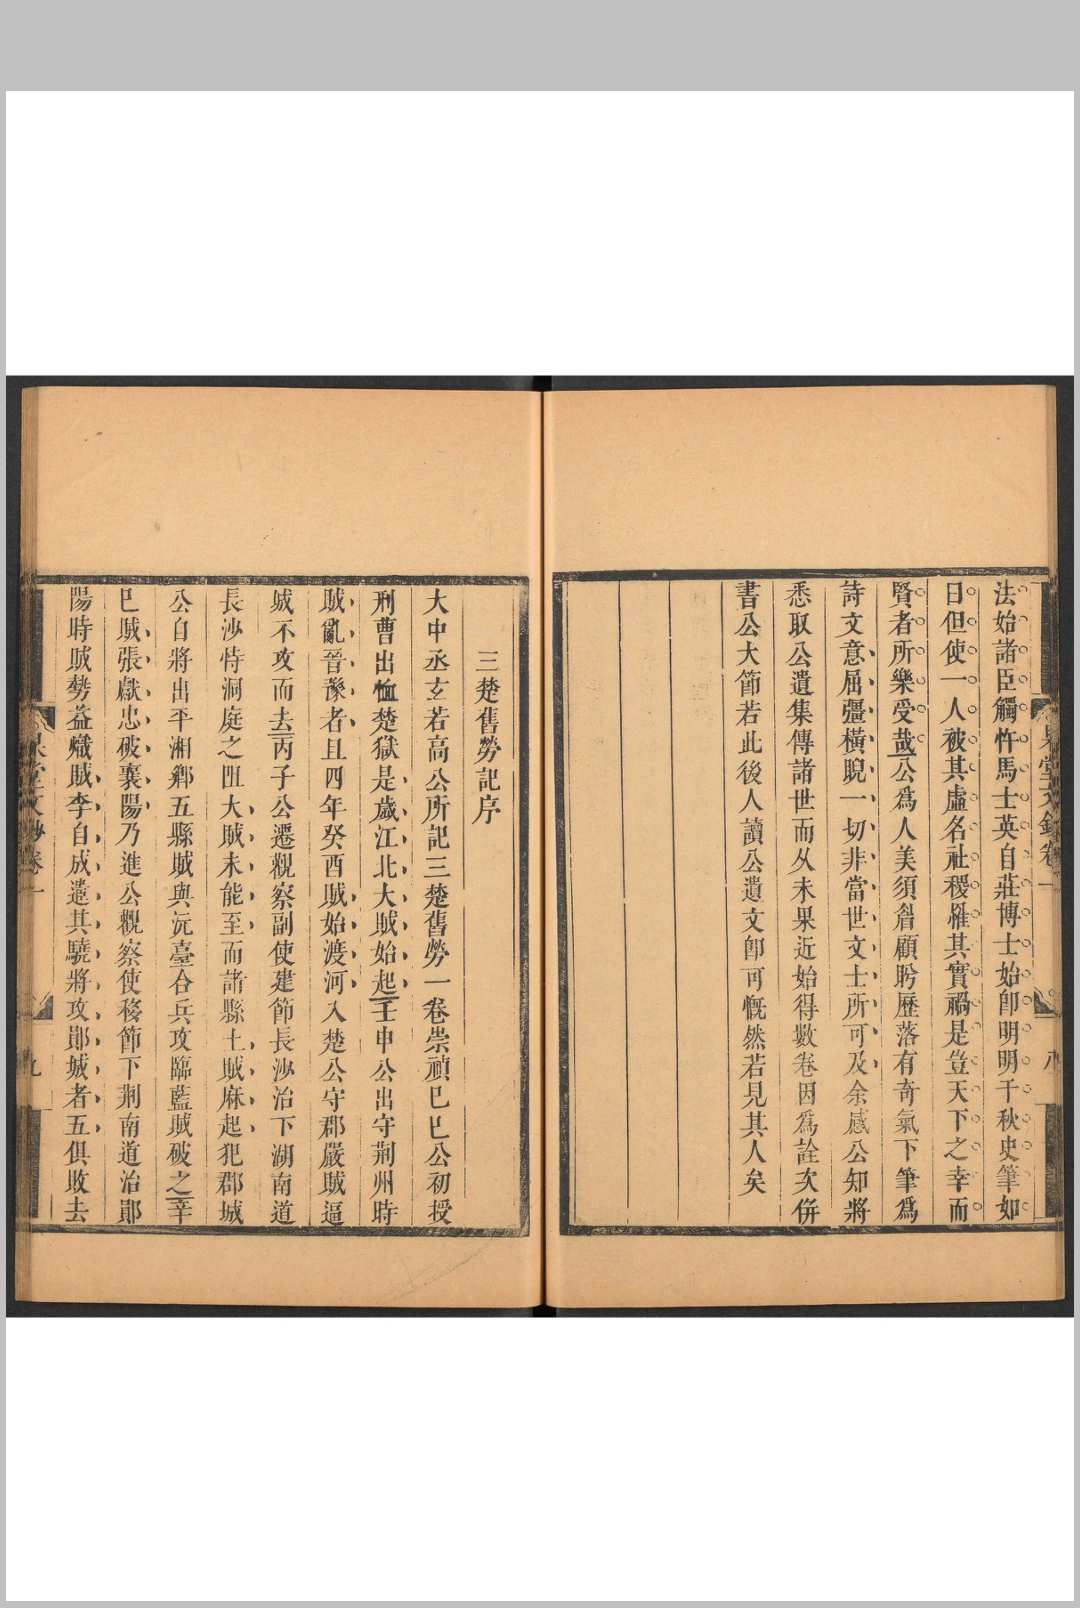 法始諸臣觸忤馬士英自莊博士始卽明明千秋史筆如
日但使一人被其虛名社稷罹其實禍是豈天下之幸而
賢者所樂受哉公爲人美須眉顧盻歷落有奇氣下筆爲
詩文意屈彊橫睨一切非當世文士所可及余感公知將
悉取公遺集傳諸世而从未果近始得數卷因爲詮次併
書公大節若此後人讀公遺文卽可慨然若見其人矣
八
三楚舊勞記序
大中丞玄若高公所記三楚舊勞一卷崇禎已巳公初授
刑曹出恤楚獄是歲江北大賊始起壬申公出守荆州時
賊亂晉豫者且四年癸酉賊始渡河入楚公守郡嚴賊逼
城不攻而去丙子公遷觀察副使建節長沙治下湖南道
長沙恃洞庭之阻大賊未能至而諸縣土賊麻起犯郡城
公自將出平湘鄉五縣賊與沅臺合兵攻臨藍賊破之辛
巳賊張獻忠破襄陽乃進公觀察使移節下荆南道治鄖
陽時賊勢益熾賊李自成遣其驍將攻鄖城者五俱敗去
杲堂文鈔卷一
九